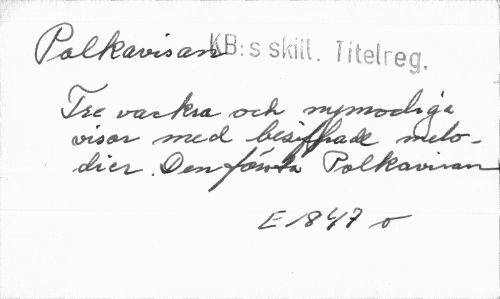 Polkavisan KB:s skill. Titelreg.
Tre vackra och nymodiga
visor med besiffrade melo-
dier. Den första Polkavisan
E 1847 o